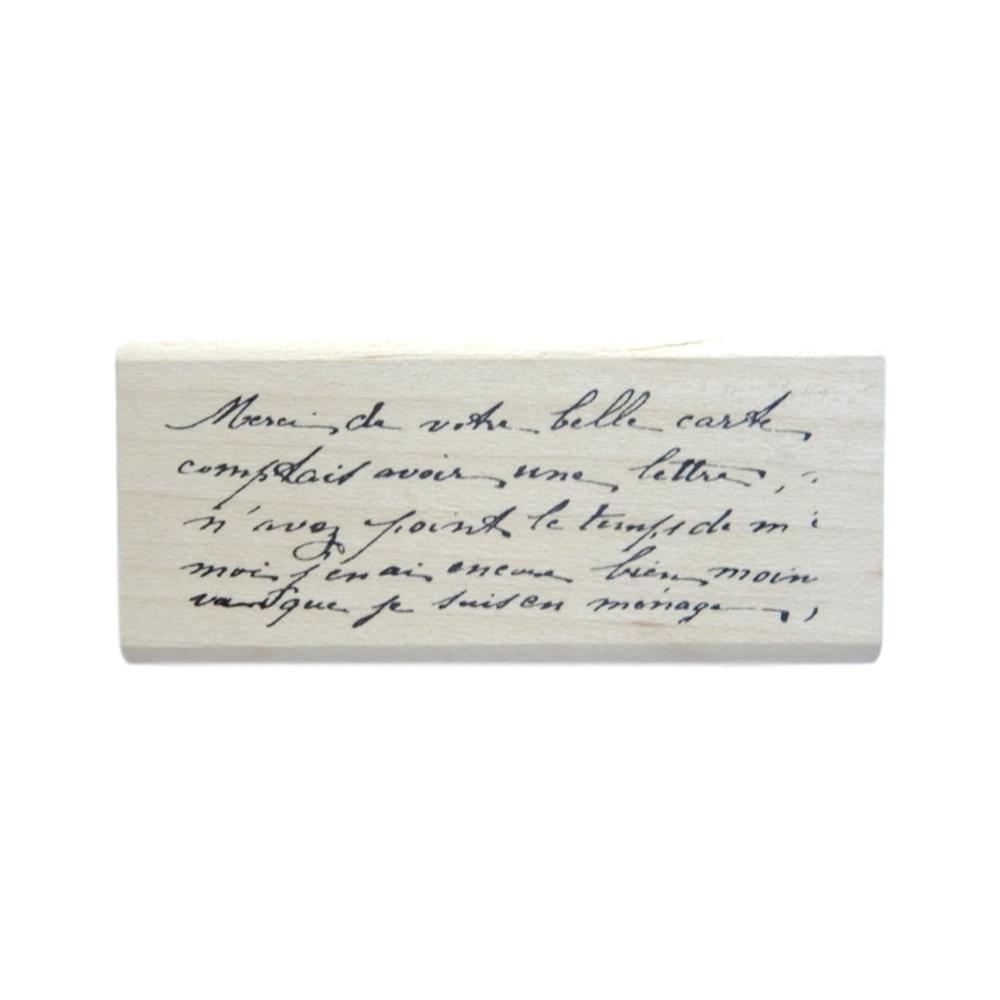 Merci de votre belle carte
comptais avoir une lettre,
n'avez point le temps de m
moi j'en ai encore bien moin
que je suis en ménage,